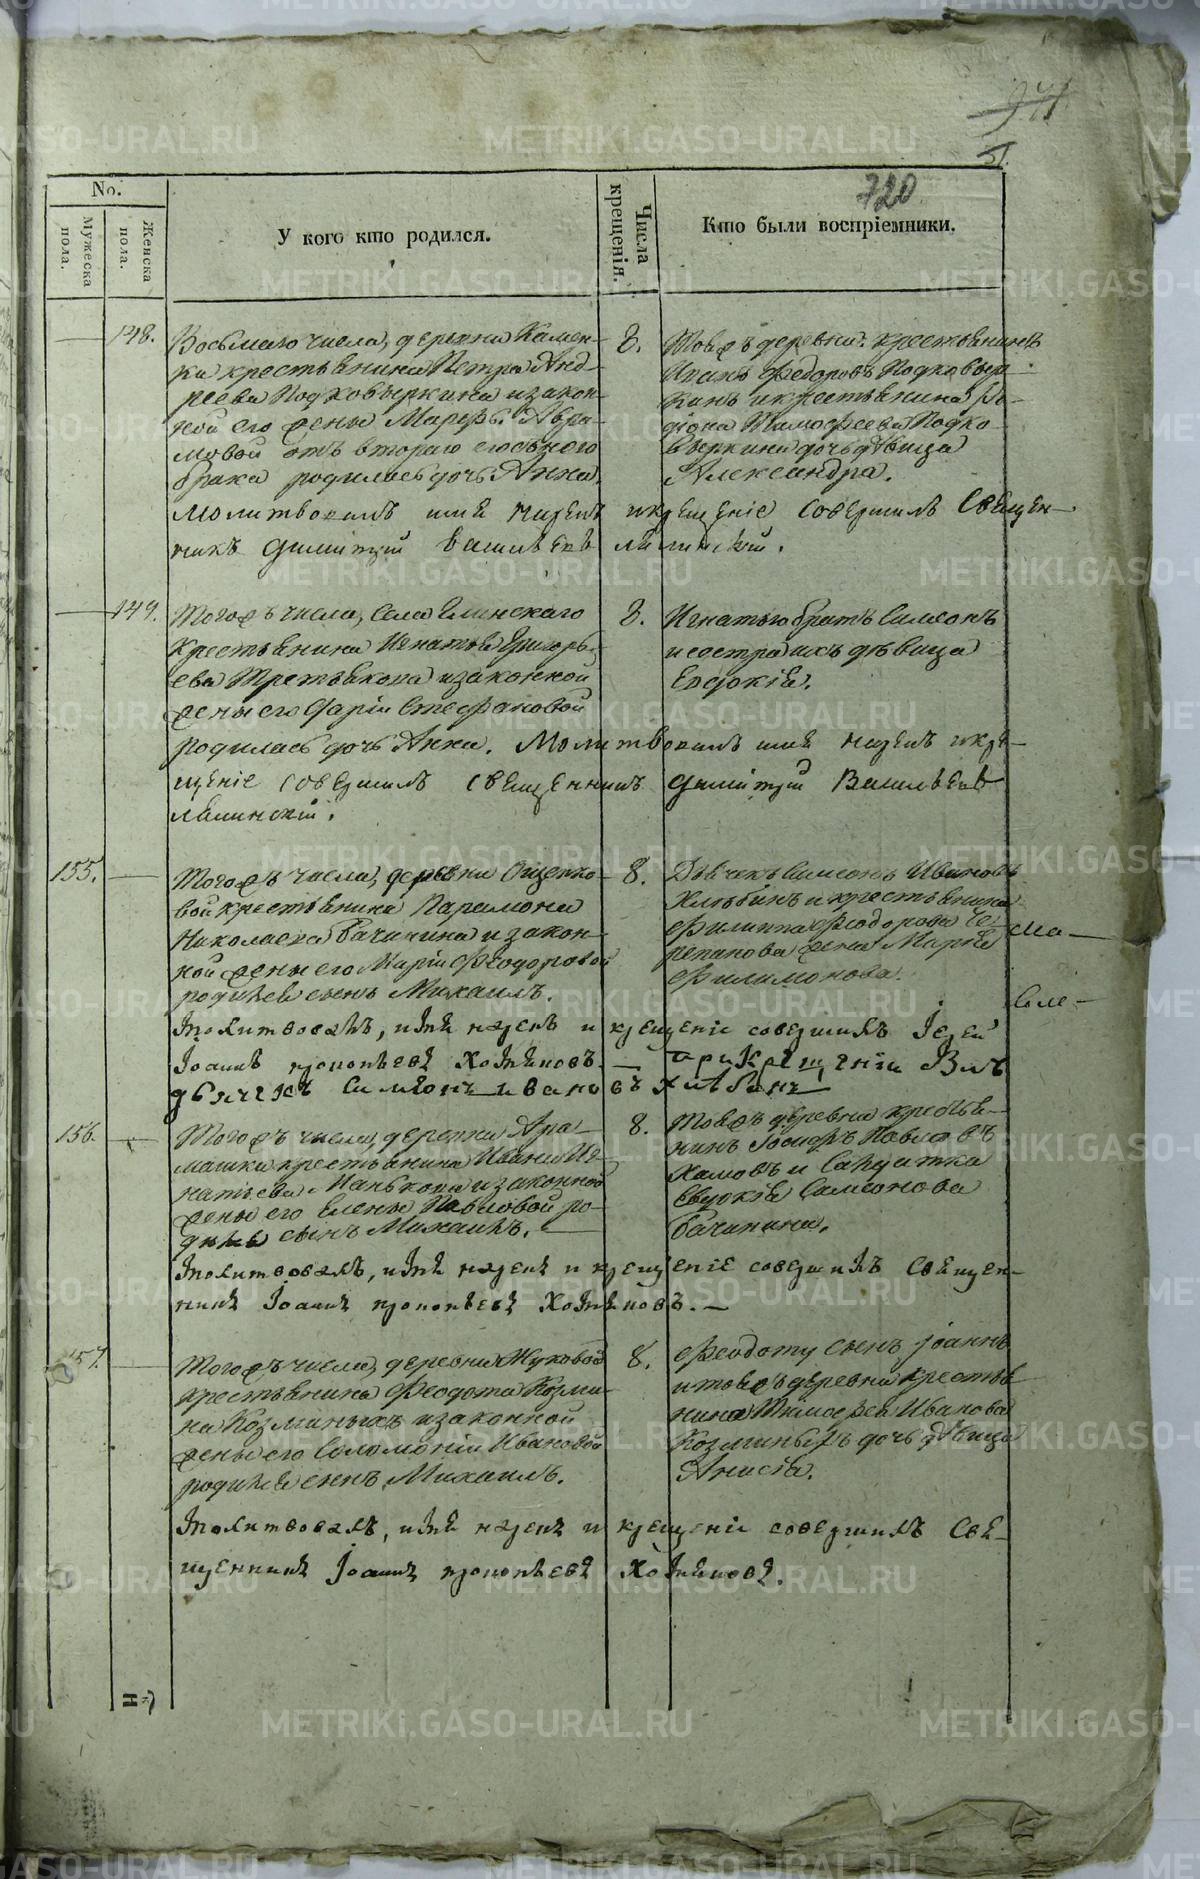 720
No.
Мужеска пола.
Женска пола.
У кого кто родился.
Числа крещенія.
Кто были воспріемники.
148.
Восьмаго числа, деревни Камен-
ки крестьянина Петра Анд-
реева Подковыркина и закон-
ной его жены Марфы Абра-
мовой отъ втораго
брака родилась дочь Анна.
8.
Тояжъ деревни крестьянинъ
Иванъ Федоровъ Подковыр-
кинъ и крестьянина Ро-
діона Тимофеева Подко-
выркина дочь дѣвица
Александра.
Молитвовалъ имя нарекъ и крещеніе совершилъ Священ-
никъ Димитрій Васильевъ
149.
Тогожъ числа, села
крестьянина Игнатья Григорь-
ева Третьякова и законной
жены его Даріи Стефановой
родилась дочь Анна.
8.
Игнатью братъ Симеонъ
и сестра ихъ дѣвица
Евдокія.
Молитвовалъ имя нарекъ и кре-
щеніе совершилъ священникъ Димитрій Васильевъ
155.
Тогожъ числа, деревни Ощепко-
вой крестьянина Парамона
Николаева Бачинина и закон-
ной жены его Маріи Феодоровой
родился сынъ Михаилъ.
8.
Дьячекъ Симеонъ Ивановъ
Хлѣбинъ и крестьянина
Филиппа Феодорова Че-
репанова жена Марѳа
Филимонова.
Молитвовалъ, имя нарекъ и крещеніе совершилъ Іерей
Іоаннъ Прокопьевъ Хожаиновъ. При крещеніи былъ
дьячекъ Симеонъ Ивановъ Хлѣбинъ
156.
Тогожъ числа, деревни Ара-
машки крестьянина Ивана Иг-
натьева Манькова и законной
жены его Елены Павловой ро-
дился сынъ Михаилъ.
8.
Тояжъ деревни крестья-
нинъ Іосифъ Павловъ
Хамовъ и Салдатка
Евдокія Самсонова
Бачинина.
Молитвовалъ, имя нарекъ и крещеніе совершилъ Священ-
никъ Іоаннъ Прокопьевъ Хожаиновъ.
157.
Тогожъ числа, деревни Жуковой
крестьянина Феодота Козми-
на Козминыхъ и законной
жены его Соломоніи Ивановой
родился сынъ Михаилъ.
8.
Феодоту сынъ Іоаннъ
и тояжъ деревни крестья-
нина Тимофея Иванова
Козминыхъ дочь дѣвица
Анисія.
Молитвовалъ, имя нарекъ и крещеніе совершилъ Свя-
щенникъ Іоаннъ Прокопьевъ Хожаиновъ.
METRIKI.GASO-URAL.RU